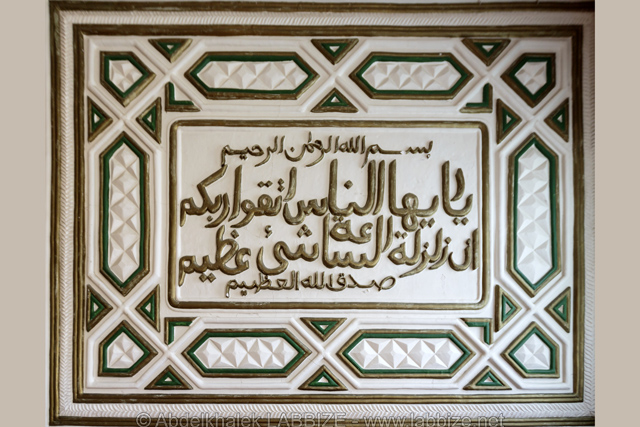 بسم الله الرحمن الرحيم
يا يها الناس اتقوا ربكم
ان زلزلة الساعة شئ عظيم
صدق الله العظيم
© Abdelkhalek LABBIZE - www.labbize.net